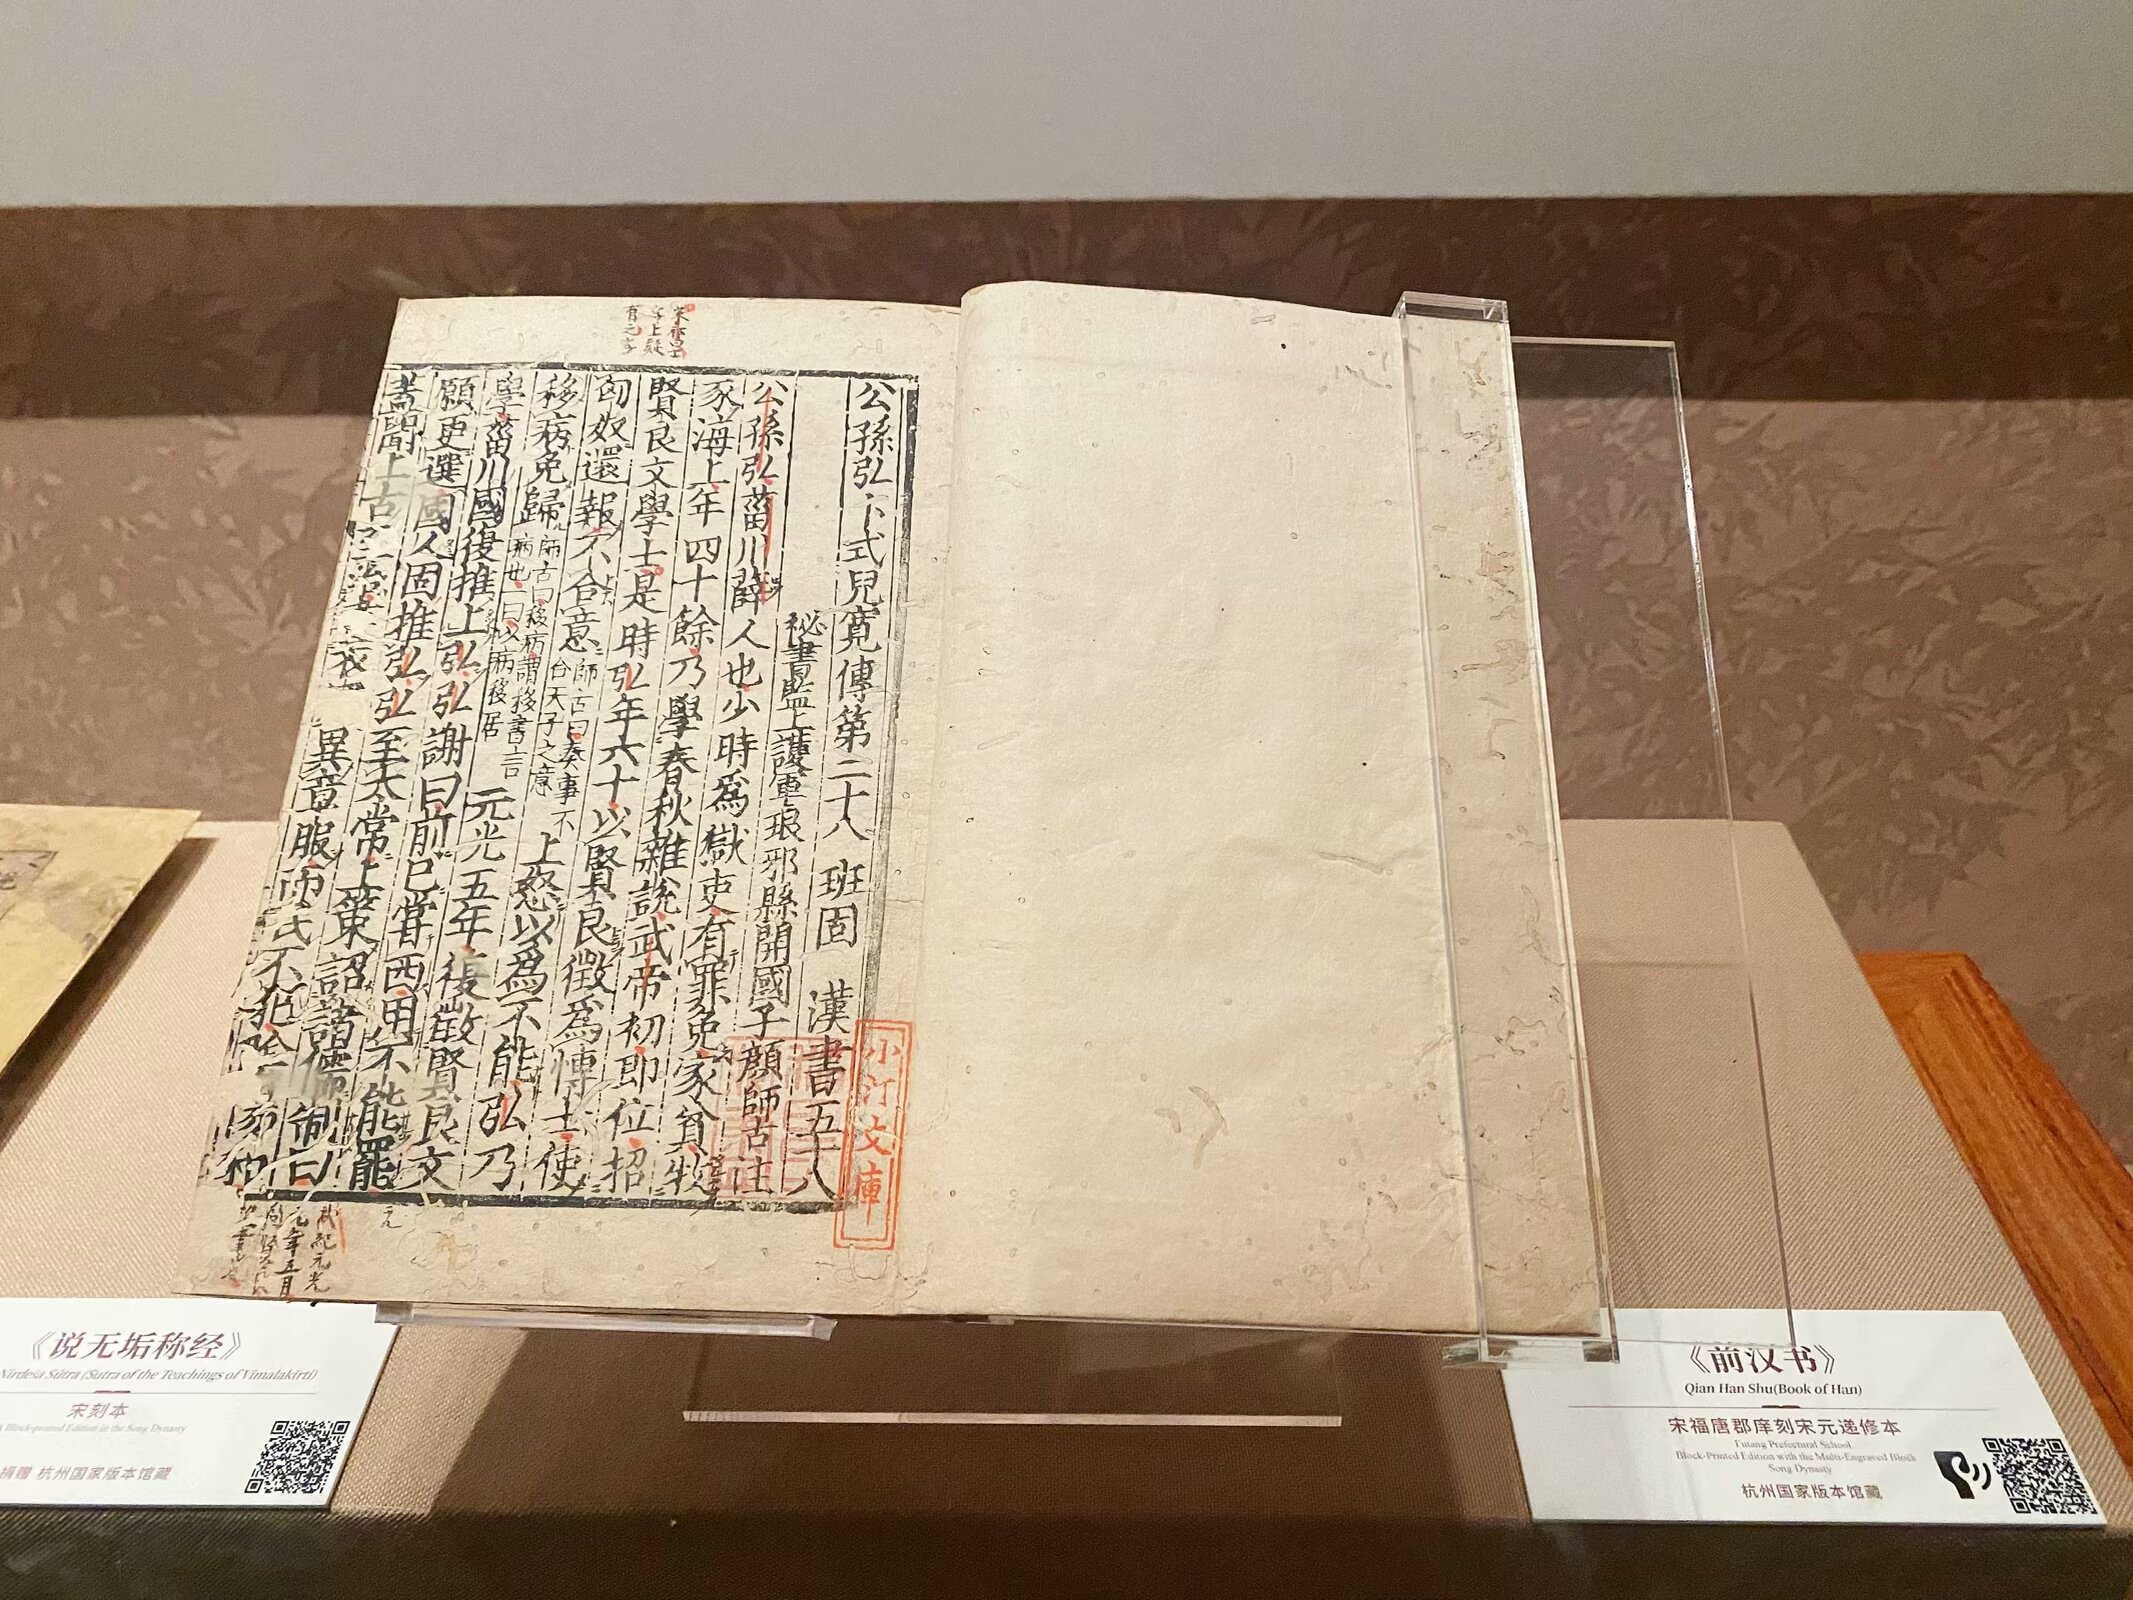 宋祁曰
字上疑
有之字
公孫弘卜式兒寛傳第二十八 班固 漢書五十八
祕書監上護軍琅邪縣開國子顔師古注
公孫弘菑川薛人也少時爲獄吏有罪免家貧牧
豕海上年四十餘乃學春秋雜說武帝初即位招
賢良文學士是時弘年六十以賢良徴爲博士使
匈奴還報不合意師古曰奏事不合天子之意上怒以爲不能弘乃
移病免歸師古曰移病謂移書言病也一曰以病移居元光五年復徴賢良文
學菑川國復推上弘弘謝曰前已嘗西用不能罷
願更選國人固推弘弘至太常上策詔諸儒制曰
蓋聞上古
異章服而民不犯陰
武紀元光
元年五月
小汀文庫
《说无垢称经》
Nirdeśa Sūtra (Sutra of the Teachings of Vimalakīrti)
宋刻本
Block-printed Edition in the Song Dynasty
捐赠 杭州国家版本馆藏
《前汉书》
Qian Han Shu(Book of Han)
宋福唐郡庠刻宋元递修本
Futang Prefectural School
Block-Printed Edition with the Multi-Engraved Block
Song Dynasty
杭州国家版本馆藏